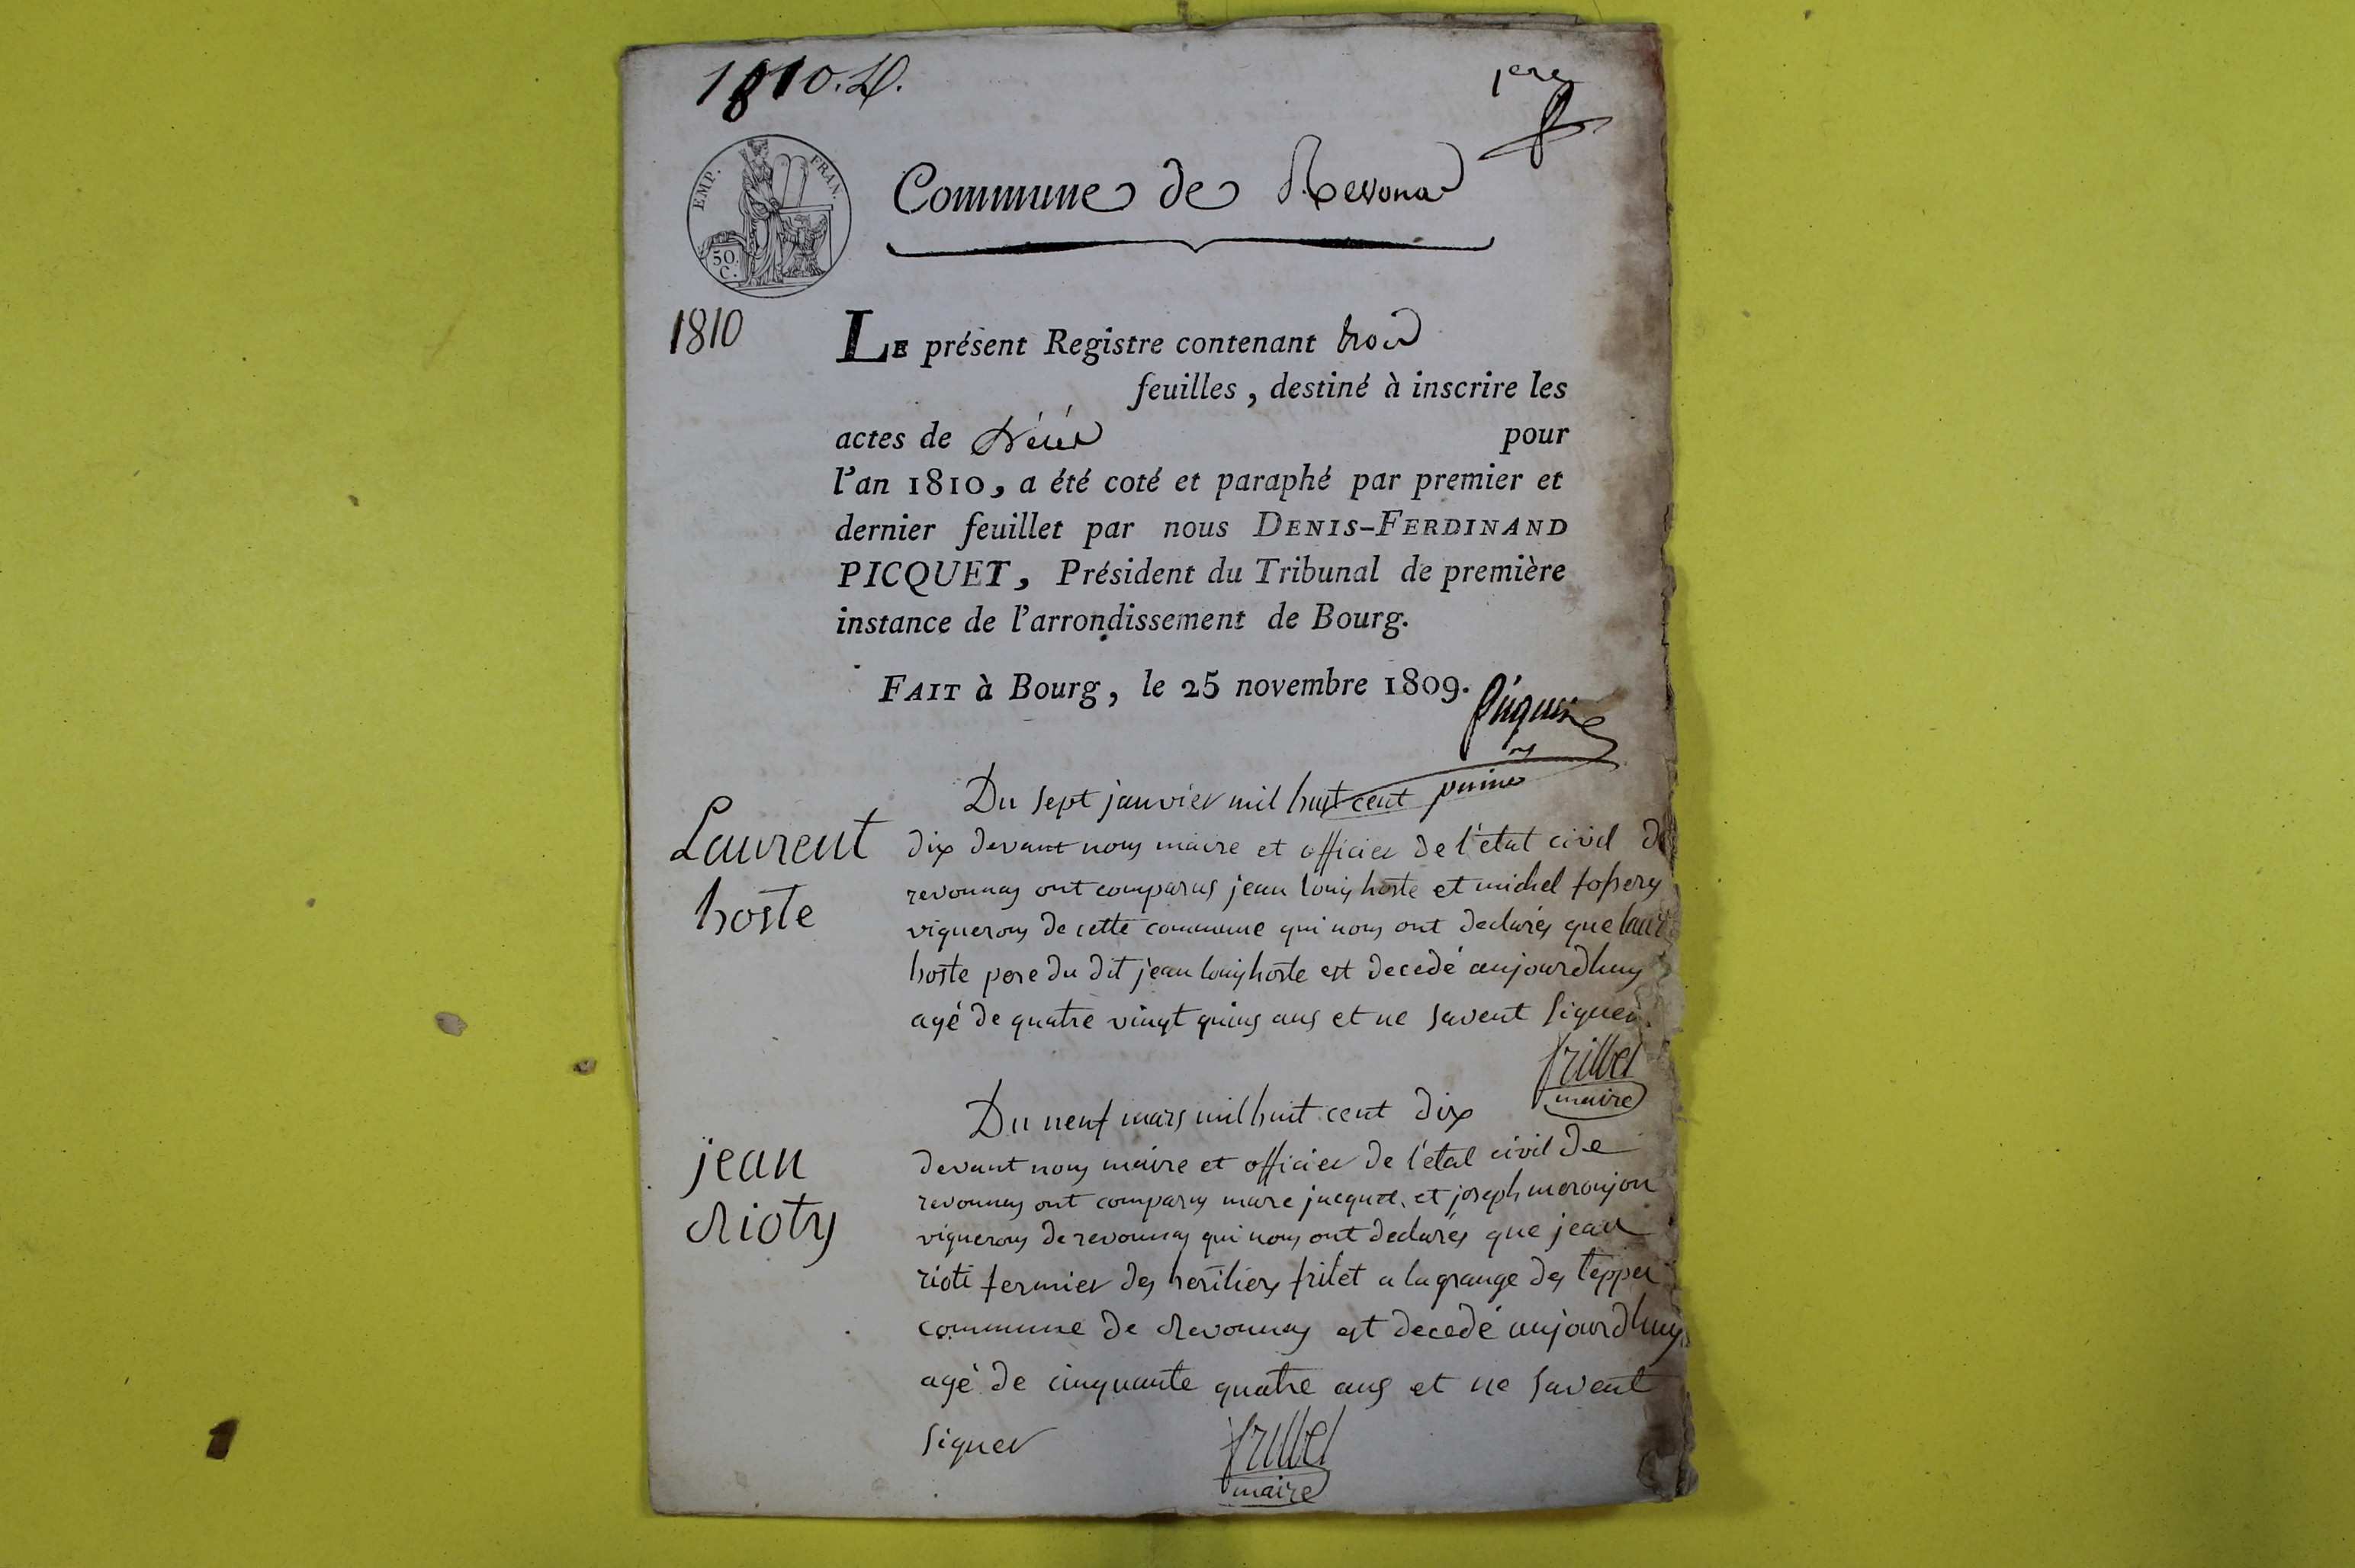 1810. D.
1ere
EMP. FRAN.
50.
C.
Commune de Revonas
1810
LE présent Registre contenant trois
feuilles, destiné à inscrire les
actes de Décès pour
l'an 1810, a été coté et paraphé par premier et
dernier feuillet par nous DENIS-FERDINAND
PICQUET, Président du Tribunal de première
instance de l'arrondissement de Bourg.
FAIT à Bourg, le 25 novembre 1809.
Picquet
Du sept janvier mil huit cent
Laurent
hoste
dix devant nous maire et officier de l'état civil de
revonnas ont comparus jean louis hoste et michel
vignerons de cette commune qui nous ont declarés que
hoste pere du dit jean louis hoste est decedé aujourdhuy
agé de quatre vingt quins ans et ne savent signer.
frillet
maire
Du neuf mars mil huit cent dix
jean
Rioty
devant nous maire et officier de l'état civil de
revonnas ont comparus marc jacquet et joseph moronjon
vignerons de revonnas qui nous ont declarés que jean
rioti fermier des heritiers frilet a la grange des teppes
commune de Revonnas est decedé aujourdhuy
agé de cinquante quatre ans et ne savent
signer
frillet
maire